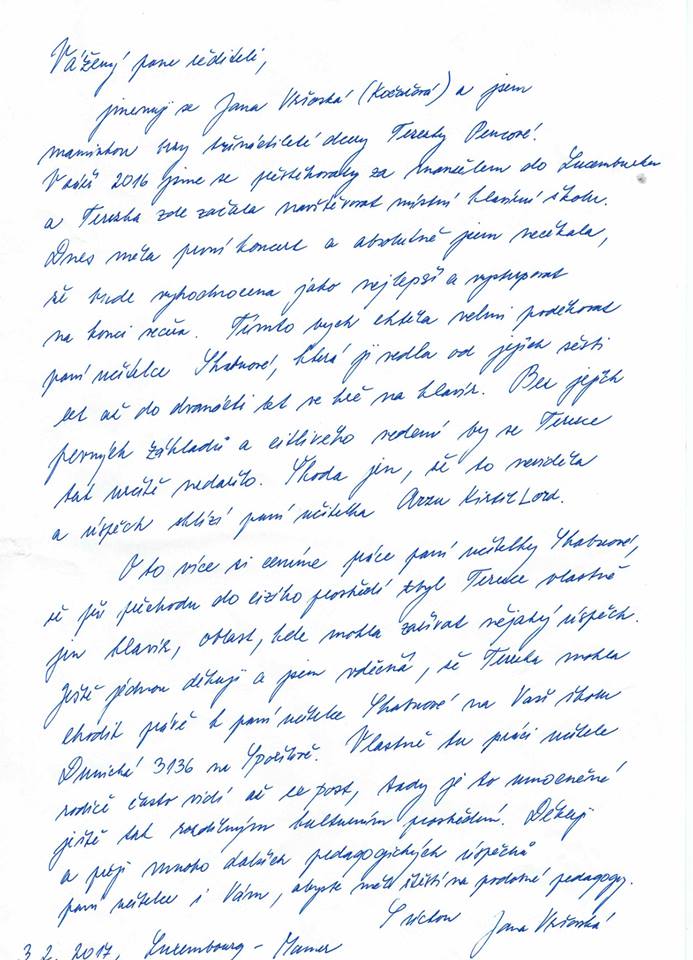 Vážený pane řediteli,
jmenuji se Jana Vršovská (Kočařová) a jsem
maminkou brzy třináctileté dcery Terezky Pencové.
V září 2016 jsme se přestěhovaly za manželem do Lucemburku
a Terezka zde začala navštěvovat místní klavírní školu.
Dnes měla první koncert a absolutně jsem nečekala,
že bude vyhodnocena jako nejlepší a vystupovat
na konci večera. Tímto bych chtěla velmi poděkovat
paní učitelce Skatusové, která ji vedla od jejích šesti
let až do dvanácti let ve hře na klavír. Bez jejích
pevných základů a citlivého vedení by se Terezce
tak určitě nedařilo. Škoda jen, že to neviděla
a úspěch sklízí paní učitelka Arzu Kirtil Lord.
O to více si ceníme práce paní učitelky
že při příchodu do cizího prostředí zbyl Terezce vlastně
jen klavír, oblast, kde mohla zažívat nějaký úspěch.
Ještě jednou děkuji a jsem vděčná, že Terezka mohla
chodit právě k paní učitelce na Vaši školu
3136 na Spořilově. Vlastně tu práci učitele
rodiče často vidí až ex post, tady je to umocněné
ještě tak rozdílným kulturním prostředím. Děkuji
a přeji mnoho dalších pedagogických úspěchů
paní učitelce i Vám, abyste měli štěstí na podobné pedagogy.
S úctou Jana Vršovská
3. 2. 2017, Luxembourg - Mamer